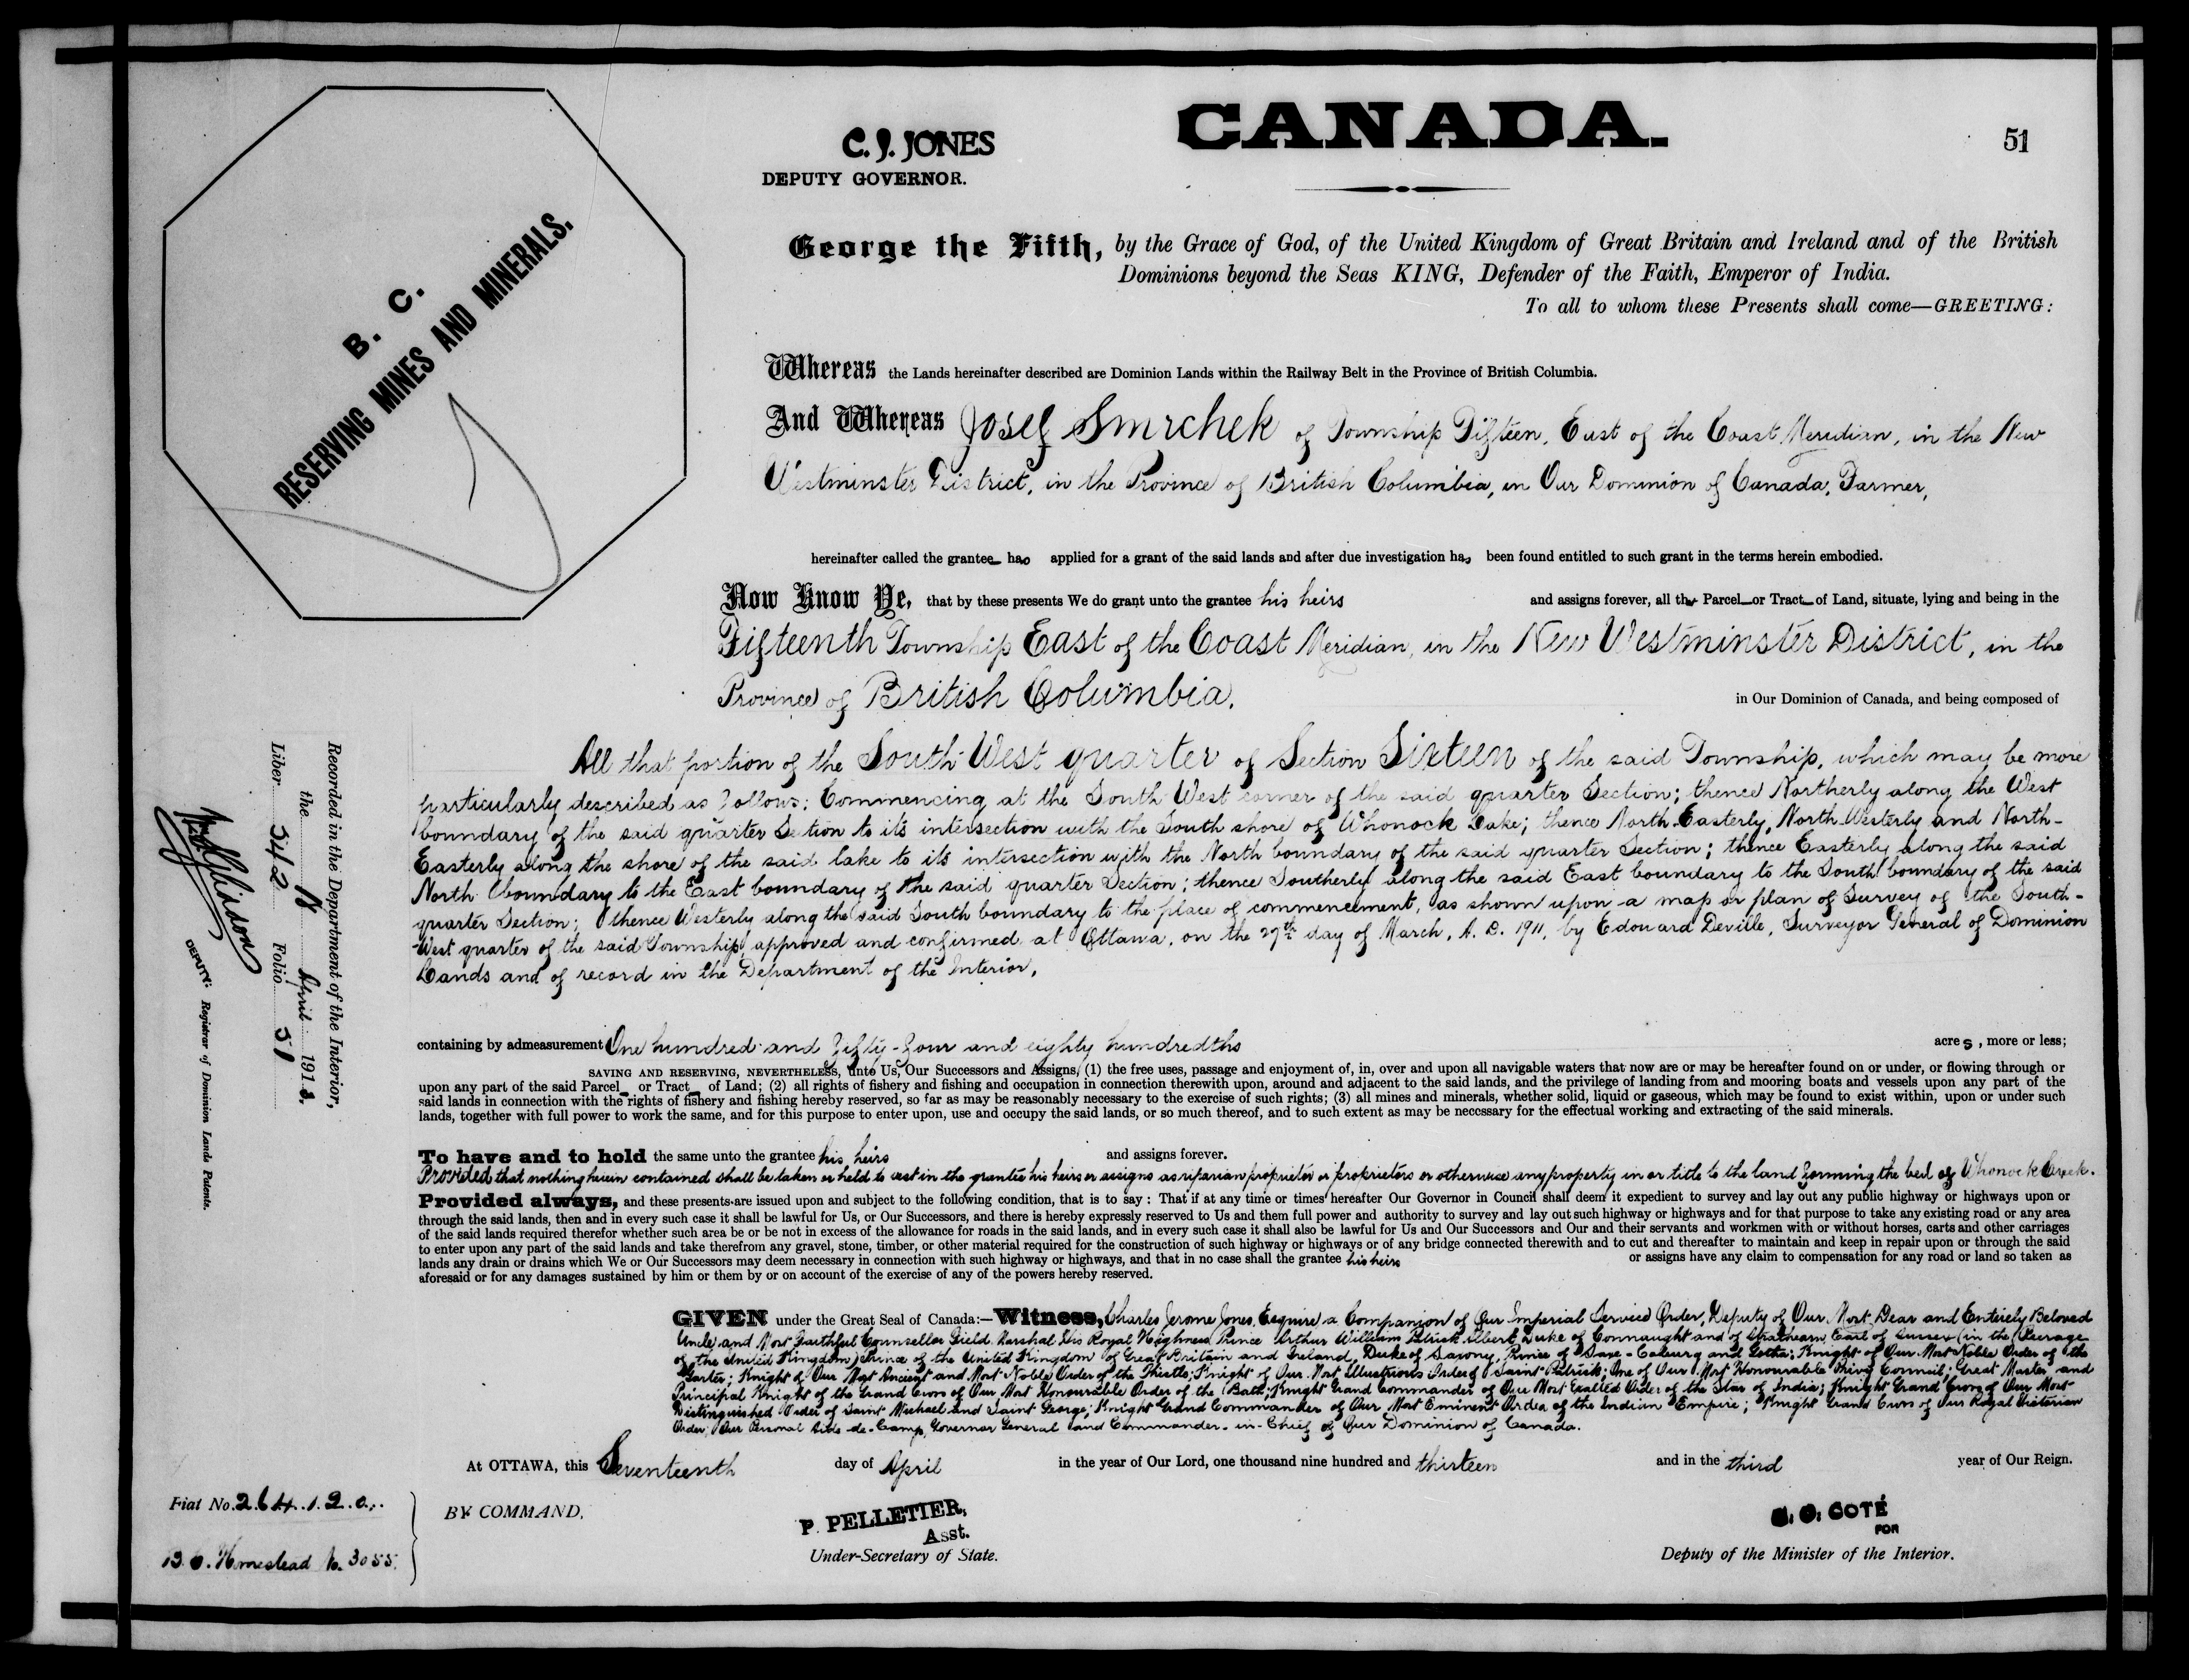 CANADA.
51
C. J. JONES
DEPUTY GOVERNOR.
B. C.
RESERVING MINES AND MINERALS.
George the Fifth, by the Grace of God, of the United Kingdom of Great Britain and Ireland and of the British
Dominions beyond the Seas KING, Defender of the Faith, Emperor of India.
To all to whom these Presents shall come—GREETING:
Whereas the Lands hereinafter described are Dominion Lands within the Railway Belt in the Province of British Columbia.
And Whereas Josef Smrchek of Township Fifteen, East of the Coast Meridian, in the New
Westminster District, in the Province of British Columbia, in Our Dominion of Canada, Farmer,
hereinafter called the grantee has applied for a grant of the said lands and after due investigation has been found entitled to such grant in the terms herein embodied.
Now Know Ye, that by these presents We do grant unto the grantee his heirs and assigns forever, all that Parcel or Tract of Land, situate, lying and being in the
Fifteenth Township East of the Coast Meridian, in the New Westminster District, in the
Province of British Columbia, in Our Dominion of Canada, and being composed of
All that portion of the South West quarter of Section Sixteen of the said Township, which may be more
particularly described as follows: Commencing at the South West corner of the said quarter Section; thence Northerly along the West
boundary of the said quarter Section to its intersection with the South shore of Whonock Lake; thence North Easterly, North Westerly and North-
Easterly along the shore of the said lake to its intersection with the North boundary of the said quarter Section; thence Easterly along the said
North boundary to the East boundary of the said quarter Section; thence Southerly along the said East boundary to the South boundary of the said
quarter Section; thence Westerly along the said South boundary to the place of commencement, as shown upon a map or plan of Survey of the South-
West quarter of the said Township, approved and confirmed at Ottawa, on the 27th day of March, A. D. 1911, by Edouard Deville, Surveyor General of Dominion
Lands and of record in the Department of the Interior,
containing by admeasurement One hundred and fifty-four and eighty hundredths acres, more or less;
SAVING AND RESERVING, NEVERTHELESS, unto Us, Our Successors and Assigns, (1) the free uses, passage and enjoyment of, in, over and upon all navigable waters that now are or may be hereafter found on or under, or flowing through or
upon any part of the said Parcel or Tract of Land; (2) all rights of fishery and fishing and occupation in connection therewith upon, around and adjacent to the said lands, and the privilege of landing from and mooring boats and vessels upon any part of the
said lands in connection with the rights of fishery and fishing hereby reserved, so far as may be reasonably necessary to the exercise of such rights; (3) all mines and minerals, whether solid, liquid or gaseous, which may be found to exist within, upon or under such
lands, together with full power to work the same, and for this purpose to enter upon, use and occupy the said lands, or so much thereof, and to such extent as may be necessary for the effectual working and extracting of the said minerals.
To have and to hold the same unto the grantee his heirs and assigns forever.
Provided that nothing herein contained shall be taken or held to vest in the grantee his heirs or assigns as riparian proprietor or proprietors or otherwise any property in or title to the land forming the bed of Whonock Creek.
Provided always, and these presents are issued upon and subject to the following condition, that is to say: That if at any time or times hereafter Our Governor in Council shall deem it expedient to survey and lay out any public highway or highways upon or
through the said lands, then and in every such case it shall be lawful for Us, or Our Successors, and there is hereby expressly reserved to Us and them full power and authority to survey and lay out such highway or highways and for that purpose to take any existing road or any area
of the said lands required therefor whether such area be or be not in excess of the allowance for roads in the said lands, and in every such case it shall also be lawful for Us and Our Successors and Our and their servants and workmen with or without horses, carts and other carriages
to enter upon any part of the said lands and take therefrom any gravel, stone, timber, or other material required for the construction of such highway or highways or of any bridge connected therewith and to cut and thereafter to maintain and keep in repair upon or through the said
lands any drain or drains which We or Our Successors may deem necessary in connection with such highway or highways, and that in no case shall the grantee his heirs or assigns have any claim to compensation for any road or land so taken as
aforesaid or for any damages sustained by him or them by or on account of the exercise of any of the powers hereby reserved.
GIVEN under the Great Seal of Canada:—Witness, Charles Jerome Jones, Esquire a Companion of Our Imperial Service Order, Deputy of Our Most Dear and Entirely Beloved
Uncle and Most Faithful Counsellor Field Marshal His Royal Highness Prince Arthur William Patrick Albert, Duke of Connaught and of Strathearn, Earl of Sussex (in the Peerage
of the United Kingdom) Prince of the United Kingdom of Great Britain and Ireland, Duke of Saxony, Prince of Saxe-Coburg and Gotha; Knight of Our Most Noble Order of the
Garter; Knight of Our Most Ancient and Most Noble Order of the Thistle; Knight of Our Most Illustrious Order of Saint Patrick; One of Our Most Honourable Privy Council; Great Master and
Principal Knight of the Grand Cross of Our Most Honourable Order of the Bath; Knight Grand Commander of Our Most Exalted Order of the Star of India; Knight Grand Cross of Our Most
Distinguished Order of Saint Michael and Saint George; Knight Grand Commander of Our Most Eminent Order of the Indian Empire; Knight Grand Cross of Our Royal Victorian
Order; Our Personal Aide-de-Camp, Governor General and Commander-in-Chief of Our Dominion of Canada.
At OTTAWA, this Seventeenth day of April in the year of Our Lord, one thousand nine hundred and thirteen and in the third year of Our Reign.
BY COMMAND,
P. PELLETIER,
Asst.
Under-Secretary of State.
COTÉ
FOR
Deputy of the Minister of the Interior.
Fiat No. 264120.
B.C. Homestead No. 3055.
Recorded in the Department of the Interior,
the April 1913.
Liber 342 Folio 51
DEPUTY. Registrar of Dominion Lands Patents.